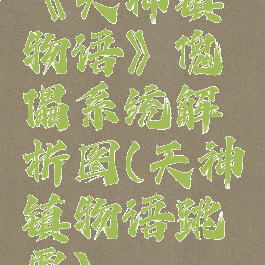 《天神镇
物语》傀
儡系统解
析图(天神
镇物语跳